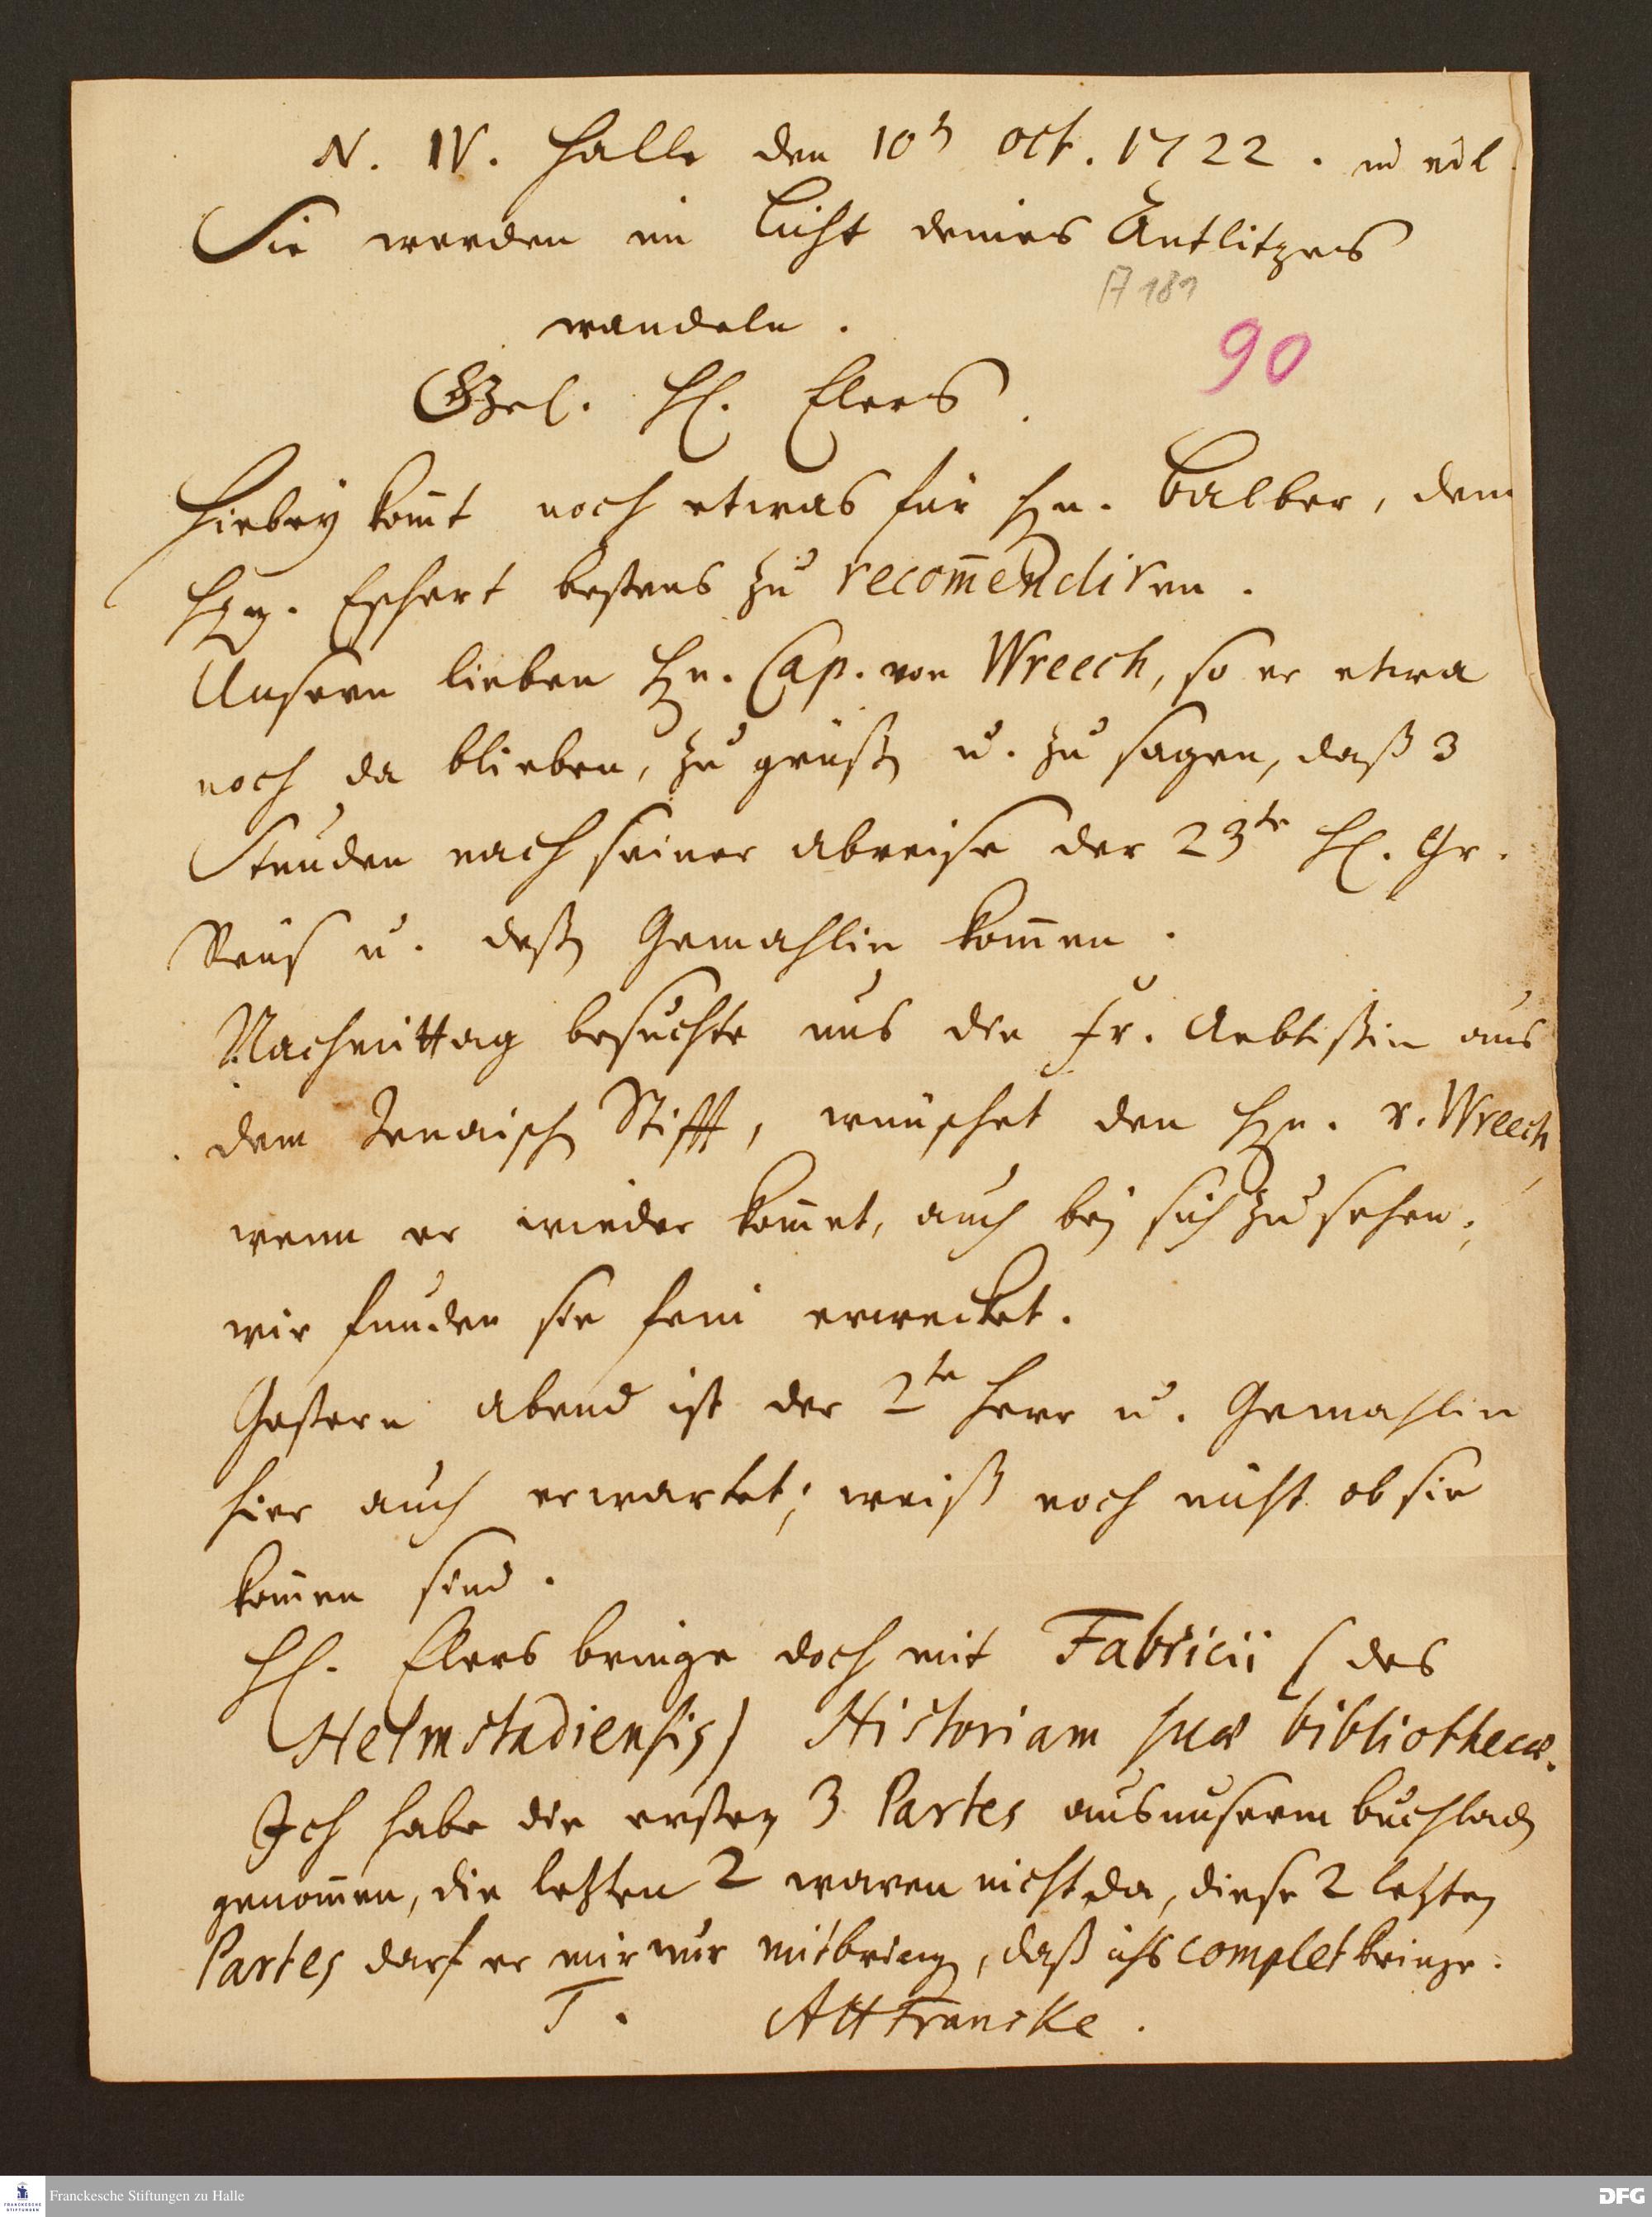 N. IV. Halle den 10t Oct. 1722.
Sie werden im Licht deines Antlitzes
A 181
wandeln.
90
Gel. H. Elers.
Hiebey kom̄t noch etwas für Hn. Balber, dem
Hn. Eckert bestens zu recom̄endiren.
Unsern lieben Hn. Cap. von Wreech, so er etwa
noch da blieben, zu grüßen u. zu sagen, daß 3
Stunden nach seiner abreise der 23te H. Gr.
Reuß u. deßen Gemahlin kom̄en.
Nachmittag besuchte uns die Fr. Aebtißin aus
dem Jenaischen Stifft, wünschet den Hn. v. Wreech,
wenn er wieder kom̄et, auch bey sich zu sehen;
wir funden sie fein erwecket.
Gestern abend ist der 2te Herr u. Gemahlin
hier auch erwartet; weiß noch nicht ob sie
kom̄en sind.
H. Elers bringe doch mit Fabricii (des
Helmstadiensis) Historiam suæ bibliothecæ.
Ich habe die ersten 3 Partes aus unserm buchladen
genom̄en, die letzten 2 waren nicht da, diese 2 letzten
Partes darf er mir nur mitbringen, daß ichs complet kriege.
T. AHFrancke.
Franckesche Stiftungen zu Halle
FRANCKESCHE STIFTUNGEN
DFG